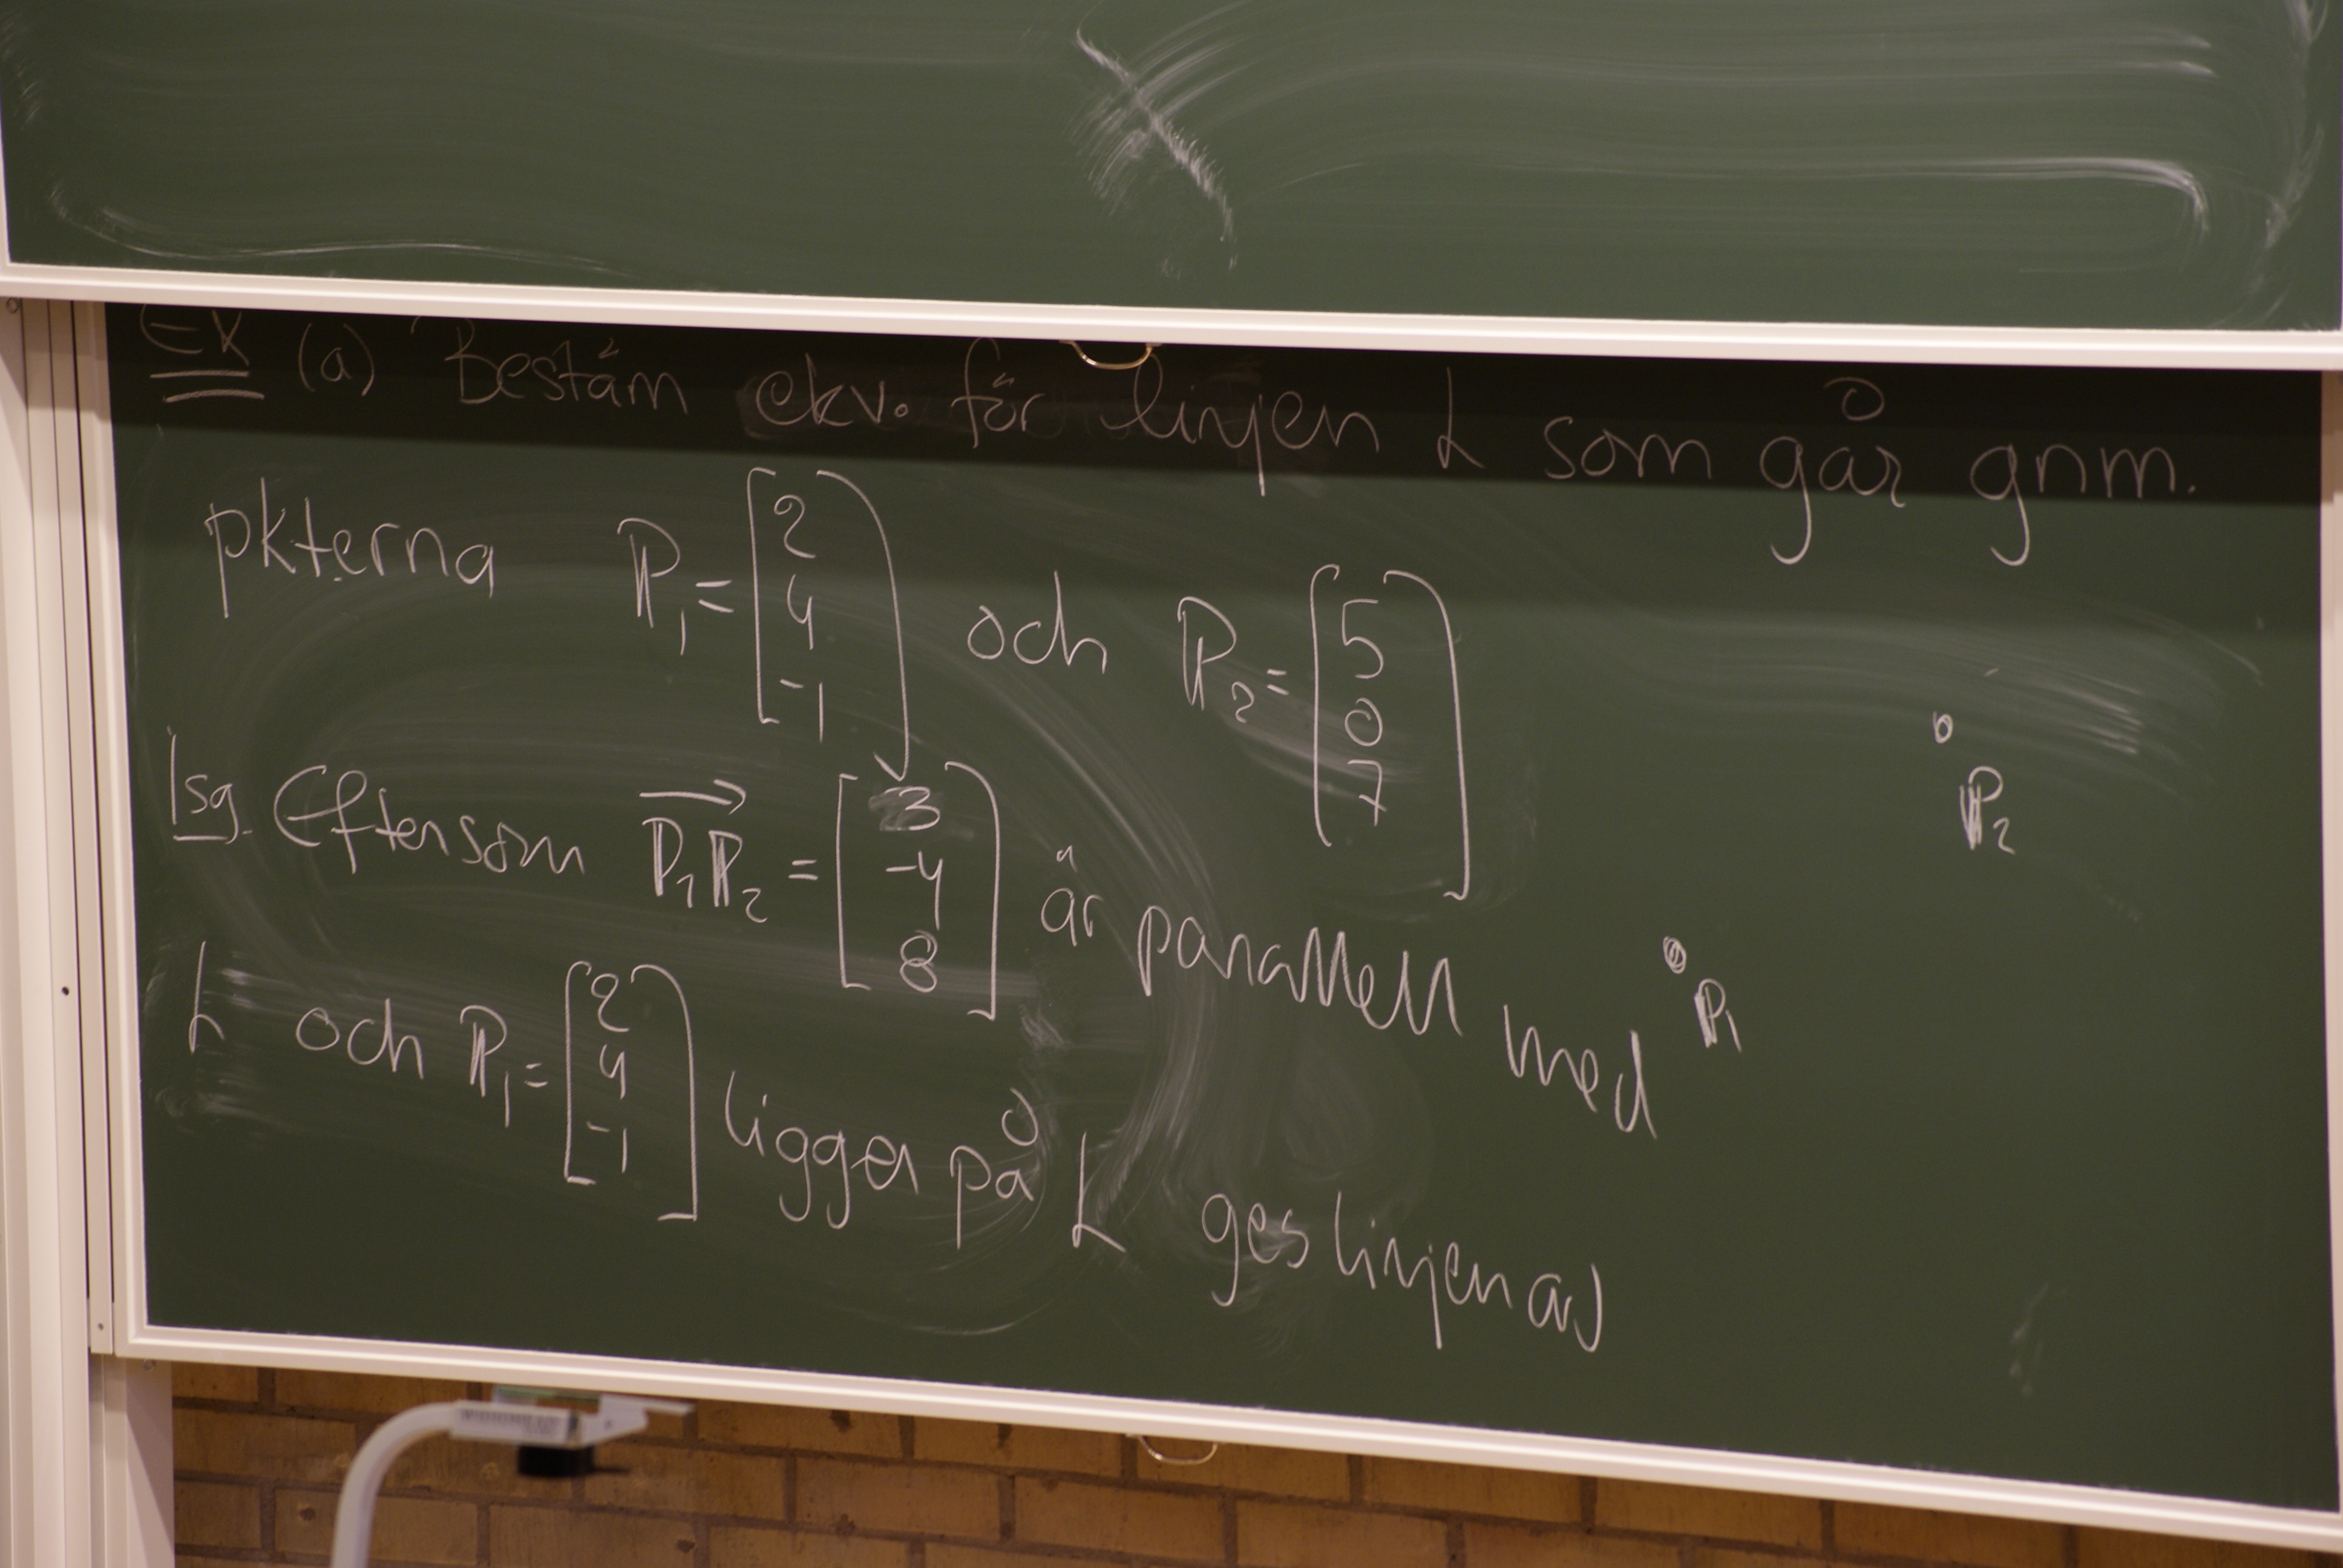 Ex (a) Bestäm ekv. för linjen L som går gnm.
pkterna P₁ = [2 4 -1] och P₂ = [5 0 7]
lsg. Eftersom P₁P₂ = [3 -4 8] är parallell med
L och P₁ = [2 4 -1] ligger på L ges linjen av
P₂
P₁